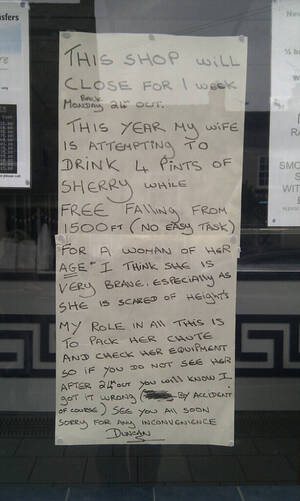 THIS SHOP WILL
CLOSE FOR 1 WEEK
BACK
MONDAY 24th OCT.
THIS YEAR MY WIFE
IS ATTEMPTING TO
DRINK 4 PINTS OF
SHERRY WHILE
FREE FALLING FROM
1500FT (NO EASY TASK)
FOR A WOMAN OF HER
AGE" I THINK SHE IS
VERY BRAVE. ESPECIALLY AS
SHE IS SCARED OF HEIGHTS
MY ROLE IN ALL THIS IS
TO PACK HER CHUTE
AND CHECK HER EQUIPMENT
SO IF YOU DO NOT SEE HER
AFTER 24th OCT YOU WILL KNOW I
GOT IT WRONG ( BY ACCIDENT
OF COURSE) SEE YOU ALL SOON
SORRY FOR ANY INCONVENIENCE
DUNCAN
nsfers
SMO